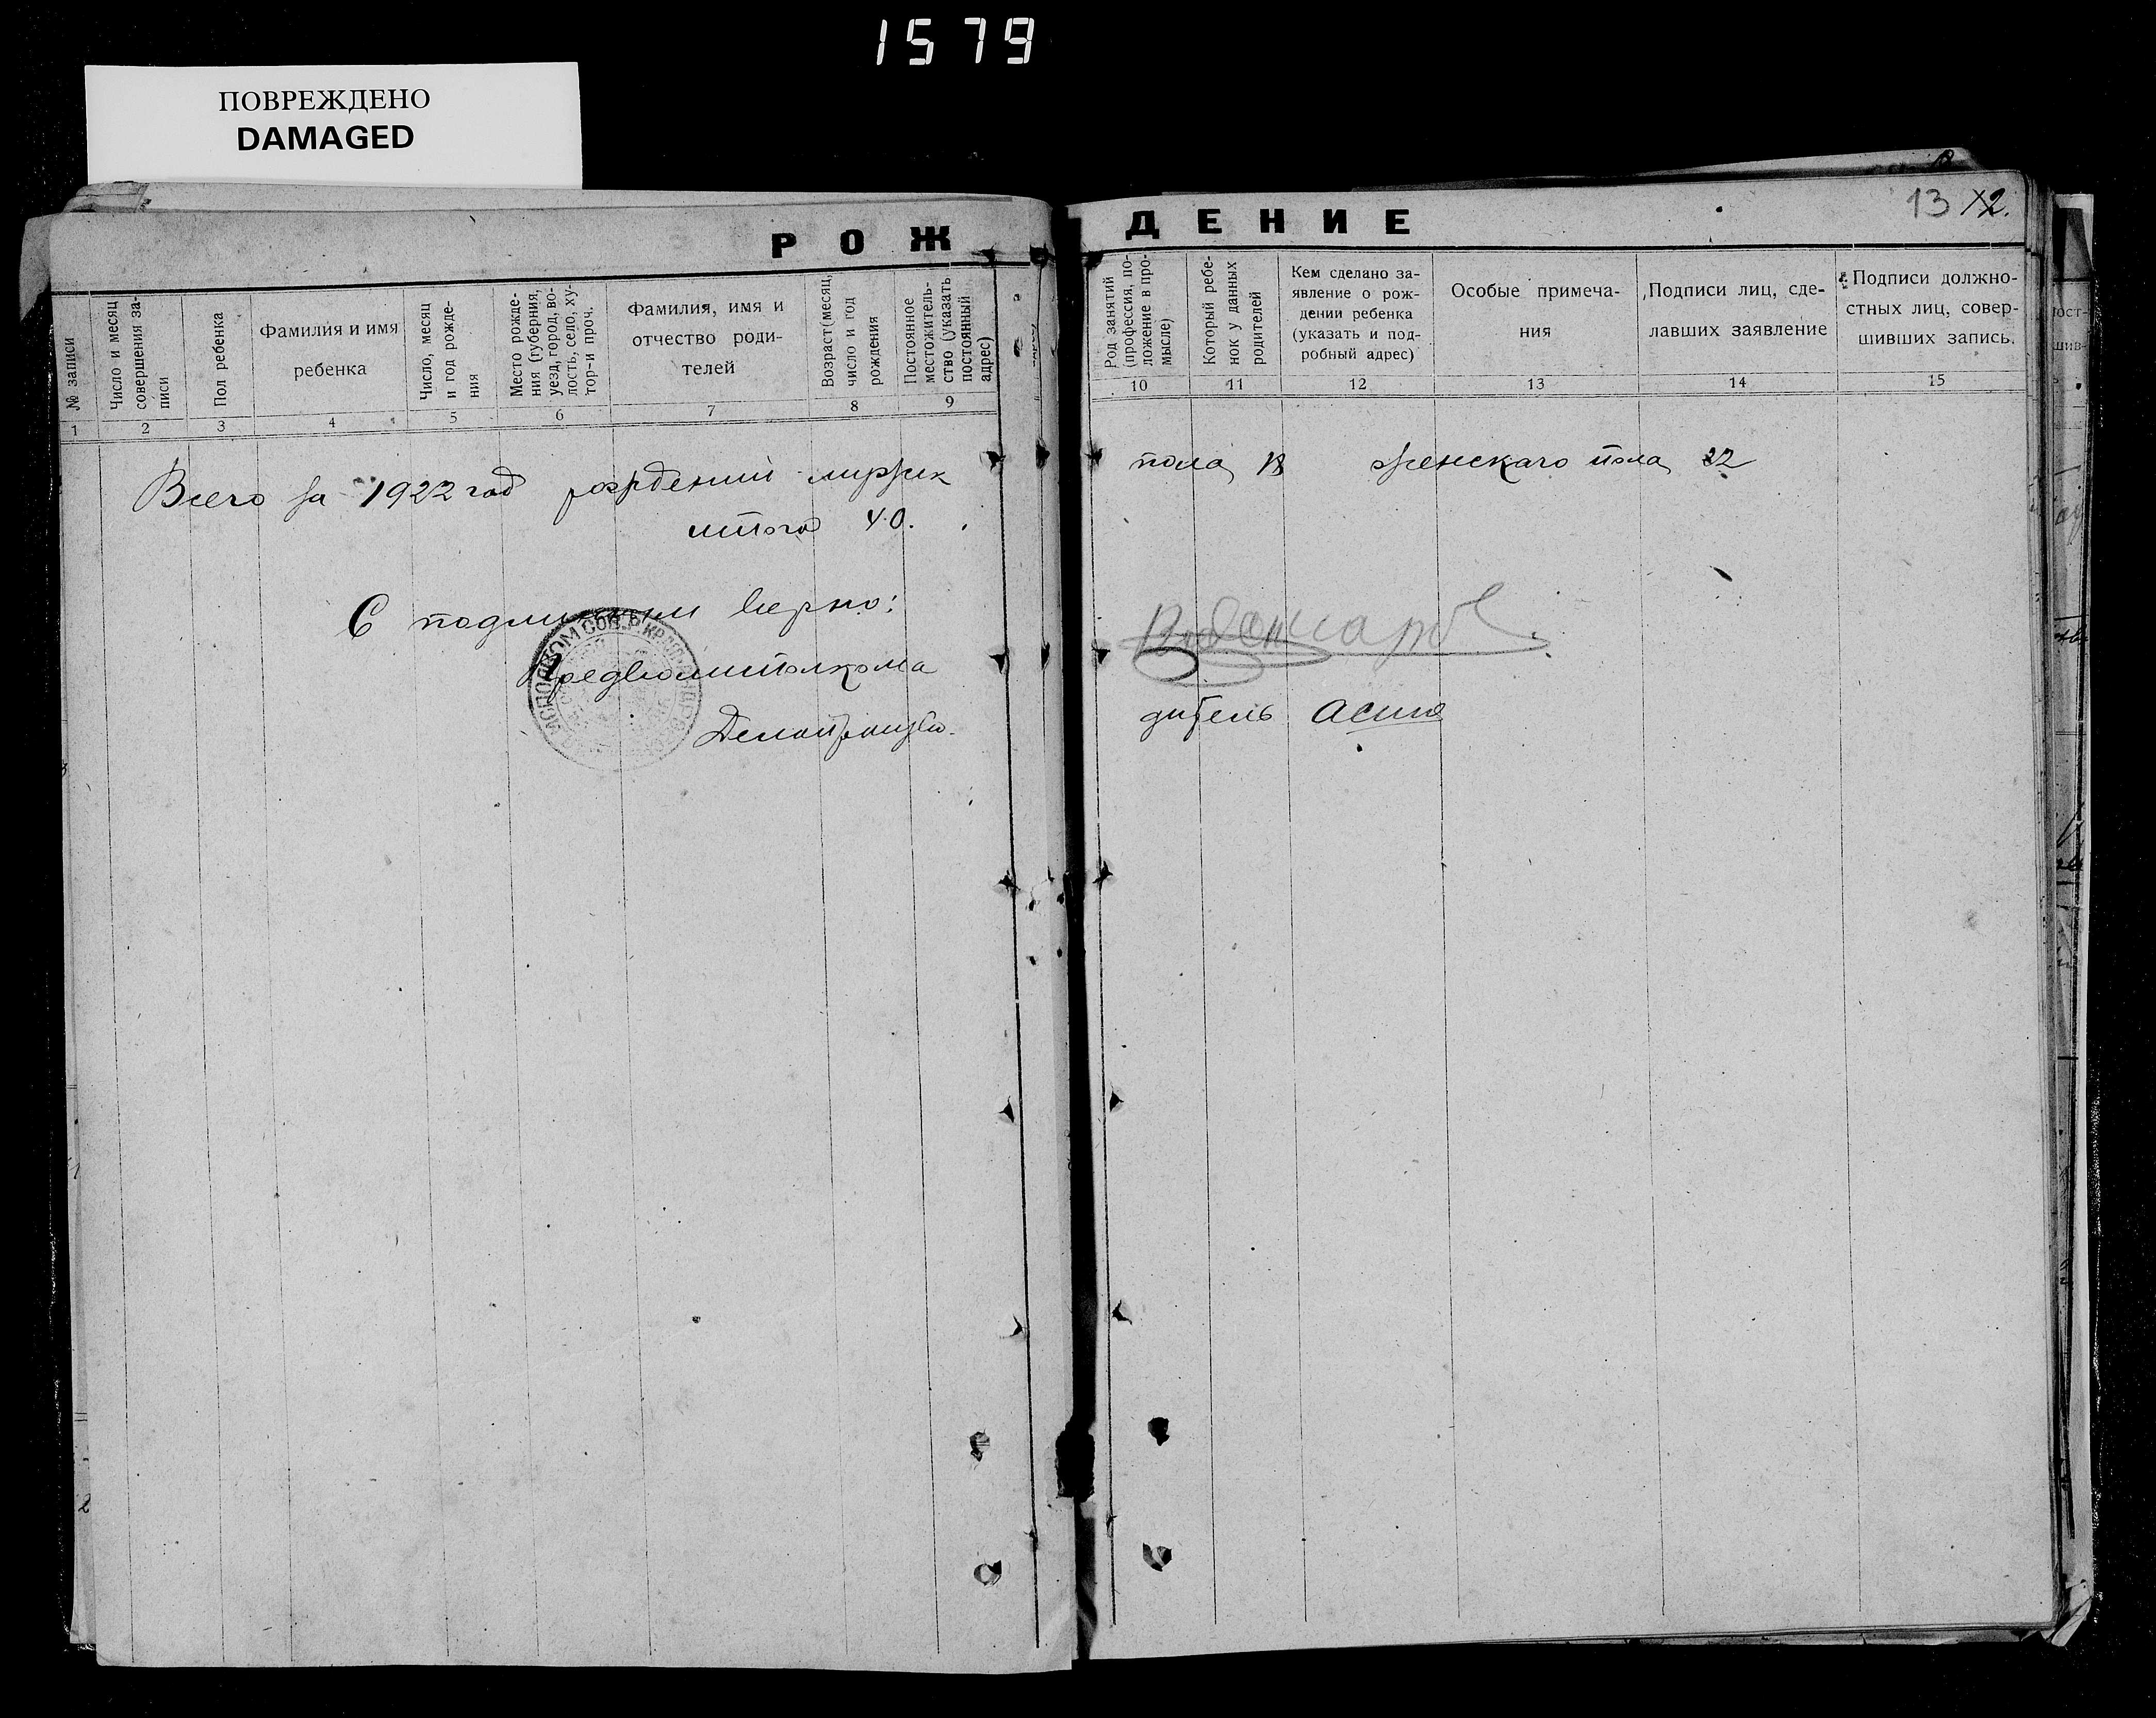 1579
ПОВРЕЖДЕНО
DAMAGED
13 12.
РОЖДЕНИЕ
№ записи
Число и месяц совершения записи
Пол ребенка
Фамилия и имя ребенка
Число, месяц и год рождения
Место рождения (губерния, уезд, город, волость, село, хутор-и проч.
Фамилия, имя и отчество родителей
Возраст (месяц, число и год рождения
Постоянное местожительство (указать постоянный адрес)
Род занятий (профессия, положение в промысле)
Который ребенок у данных родителей
Кем сделано заявление о рождении ребенка (указать и подробный адрес)
Особые примечания
Подписи лиц, сделавших заявление
Подписи должностных лиц, совершивших запись.
1 2 3 4 5 6 7 8 9 10 11 12 13 14 15
Всего за 1922 год рождений мужск пола 18 женскаго пола 22
итого 40.
С подлинным верно:
Предволисполкома
Делопроизводитель